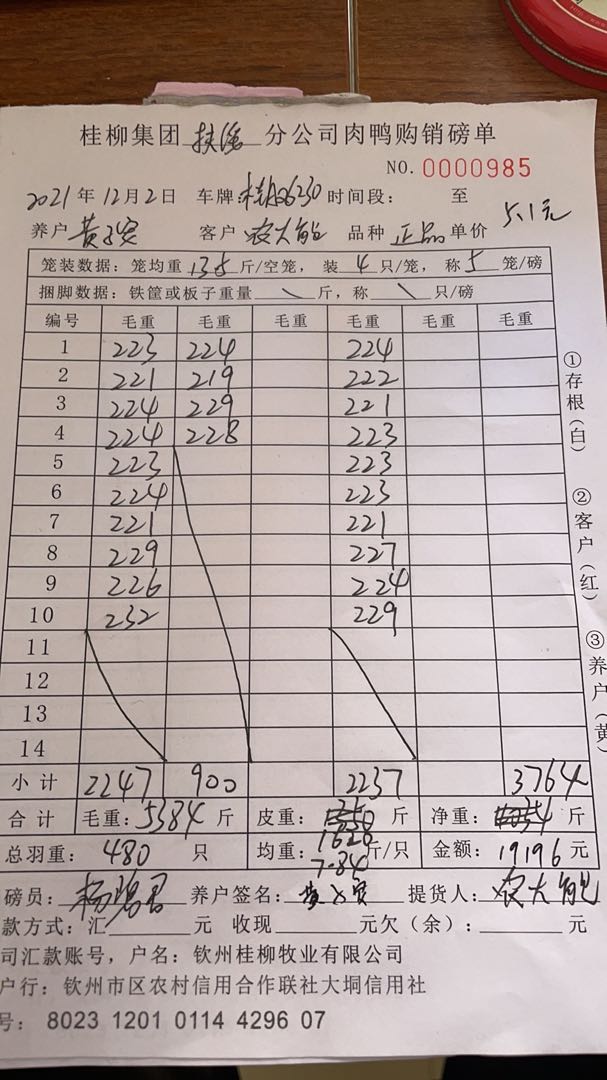 桂柳集团 扶绥 分公司肉鸭购销磅单
NO. 0000985
2021年12月2日 车牌: 桂AQ6230 时间段: 至
养户 客户 农大能 品种 正品 单价 5.1元
笼装数据: 笼均重 13.5 斤/空笼, 装 4 只/笼, 称 5 笼/磅
捆脚数据: 铁筐或板子重量 \ 斤, 称 \ 只/磅
编号 毛重 毛重 毛重 毛重 毛重 毛重
1 223 224 224
2 221 219 222
3 224 229 221
4 224 228 223
5 223 223
6 224 223
7 221 221
8 229 227
9 226 224
10 232 229
11
12
13
14
小计 2247 900 2237 3764
合计 毛重: 5384 斤 皮重: 1620 斤 净重: 斤
总羽重: 480 只 均重: 7.84 斤/只 金额: 19196 元
磅员: 养户签名: 提货人: 农大能
款方式: 汇 元 收现 元欠(余): 元
司汇款账号, 户名: 钦州桂柳牧业有限公司
户行: 钦州市区农村信用合作联社大垌信用社
号: 8023 1201 0114 4296 07
①存根(白)
②客户(红)
③养户(黄)